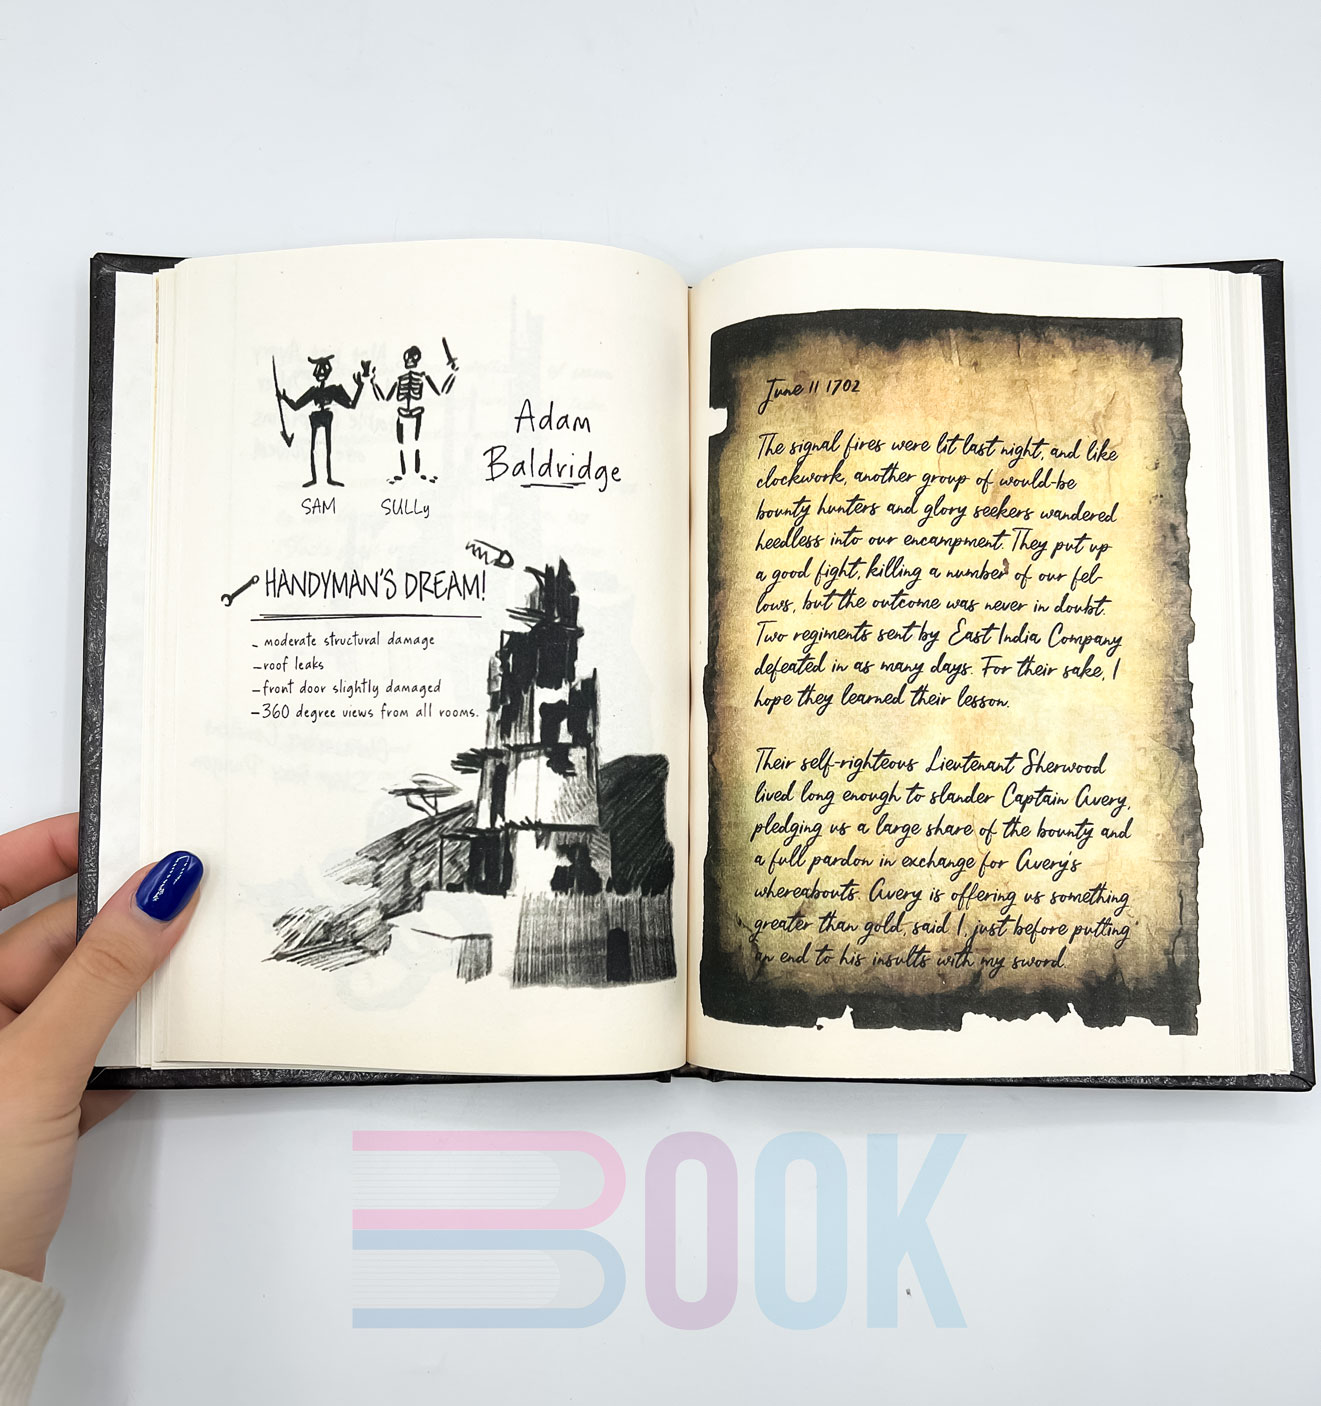 SAM
SULLy
Adam
Baldridge
HANDYMAN'S DREAM!
- moderate structural damage
-roof leaks
-front door slightly damaged
-360 degree views from all rooms.
June 11 1702
The signal fires were lit last night, and like
clockwork, another group of would-be
bounty hunters and glory seekers wandered
heedless into our encampment. They put up
a good fight, killing a number of our fel-
lows, but the outcome was never in doubt.
Two regiments sent by East India Company
defeated in as many days. For their sake, I
hope they learned their lesson.
Their self-righteous Lieutenant Sherwood
lived long enough to slander Captain Avery,
pledging us a large share of the bounty and
a full pardon in exchange for Avery's
whereabouts. Avery is offering us something
greater than gold, said I, just before putting
an end to his insults with my sword.
BOOK